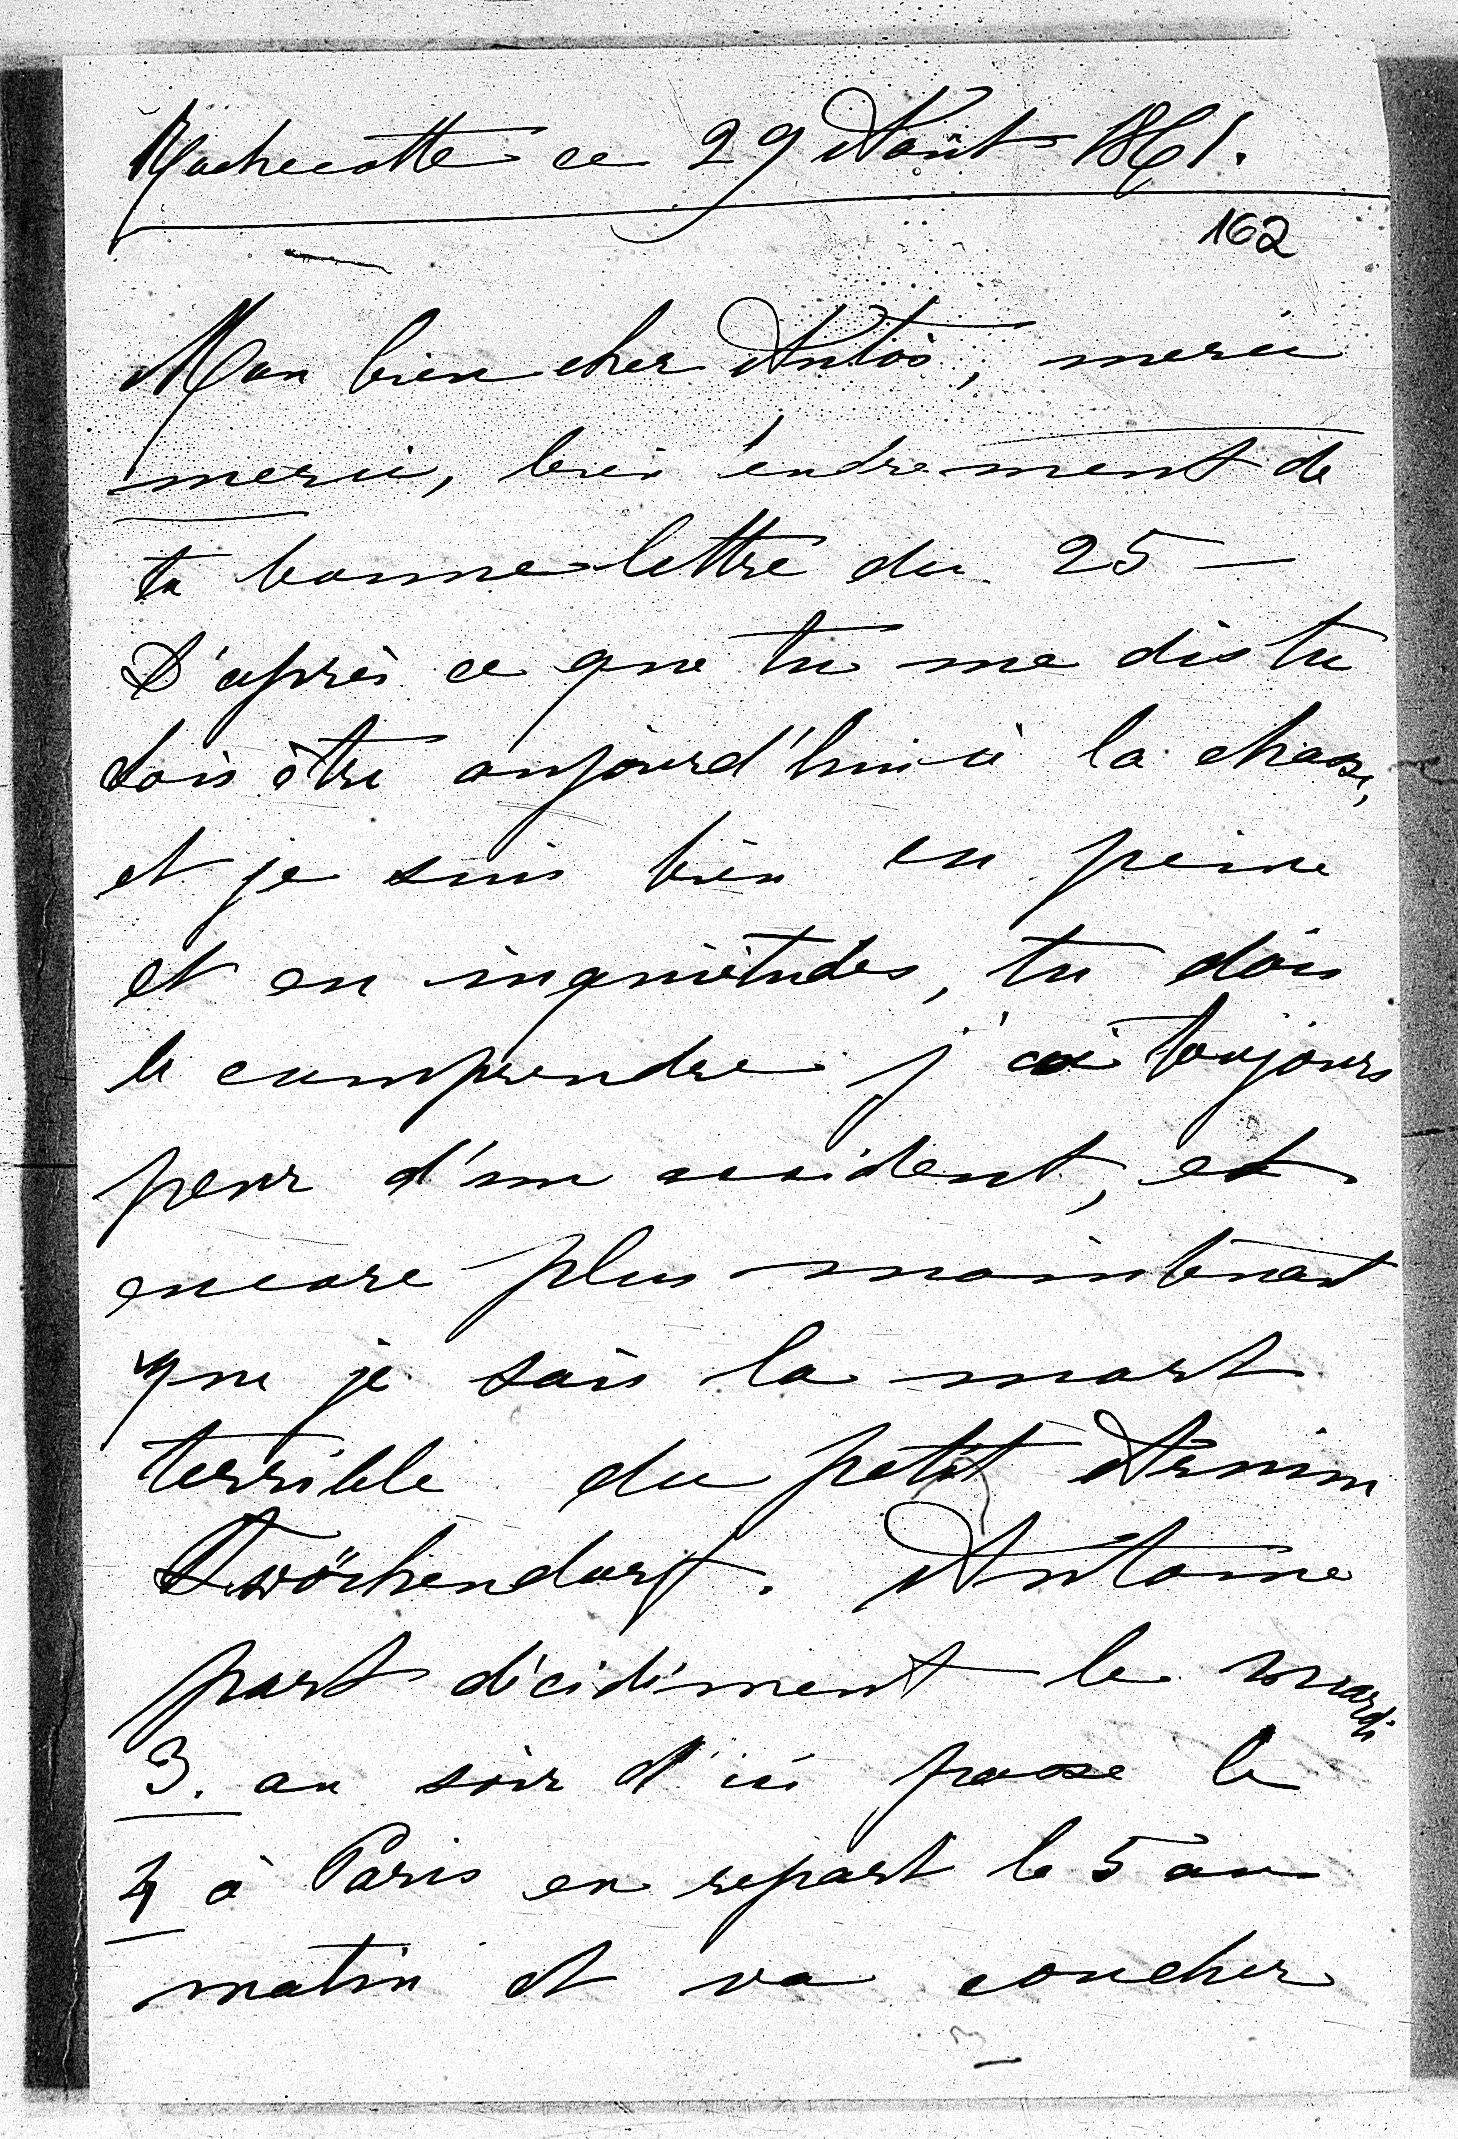 Rochecotte ce 29 Août 1861.
162
Mon bien cher Antos, merci
merci, bien tendrement de
ta bonne lettre du 25 —
D'après ce que tu me dis tu
dois être aujourd'hui à la chasse,
et je suis bien en peine
et en inquiétudes, tu dois
le comprendre j'ai toujours
peur d'un accident, et
encore plus maintenant
que je sais la mort
terrible du petit Arnim
Antoine
part décidément le mardi
3. au soir d'ici passe le
4 à Paris en repart le 5 au
matin et va coucher